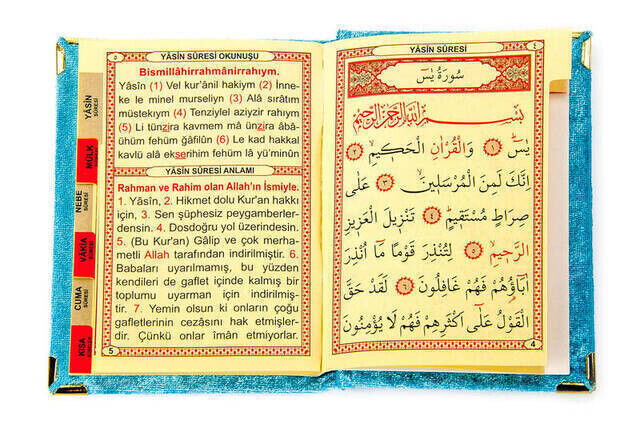 ٥
YÂSÎN SÛRESİ OKUNUŞU
Bismillâhirrahmânirrahıym.
Yâsîn (1) Vel kur'ânil hakiym (2) İnne-
ke le minel murseliyn (3) Alâ sırâtım
müstekıym (4) Tenziylel aziyzir rahıym
(5) Li tünzira kavmem mâ ünzira âbâ-
ühüm fehüm gâfilûn (6) Le kad hakkal
kavlü alâ ekserihim fehüm lâ yü'minûn
YÂSÎN SÛRESİ ANLAMI
Rahman ve Rahim olan Allah'ın İsmiyle.
1. Yâsîn, 2. Hikmet dolu Kur'an hakkı
için, 3. Sen şüphesiz peygamberler-
densin. 4. Dosdoğru yol üzerindesin.
5. (Bu Kur'an) Gâlip ve çok merha-
metli Allah tarafından indirilmiştir. 6.
Babaları uyarılmamış, bu yüzden
kendileri de gaflet içinde kalmış bir
toplumu uyarman için indirilmiş-
tir. 7. Yemin olsun ki onların çoğu
gafletlerinin cezasını hak etmişler-
dir. Çünkü onlar îmân etmiyorlar.
5
YÂSÎN
SÛRESİ
MÜLK
SÛRESİ
NEBE
SÛRESİ
VÂKIA
SÛRESİ
CUMA
SÛRESİ
KISA
SÛRELER
YÂSÎN SÛRESİ
٤
سُورَةُ يٰسٓ
بِسْمِ اللّٰهِ الرَّحْمٰنِ الرَّحِيمِ
يٰسٓ ﴿١﴾ وَالْقُرْاٰنِ الْحَكِيمِ ﴿٢﴾
اِنَّكَ لَمِنَ الْمُرْسَلِينَ ﴿٣﴾ عَلٰى
صِرَاطٍ مُسْتَقِيمٍ ﴿٤﴾ تَنْزِيلَ الْعَزِيزِ
الرَّحِيمِ ﴿٥﴾ لِتُنْذِرَ قَوْمًا مَٓا اُنْذِرَ
اٰبَٓاؤُ۬هُمْ فَهُمْ غَافِلُونَ ﴿٦﴾ لَقَدْ حَقَّ
الْقَوْلُ عَلٰٓى اَكْثَرِهِمْ فَهُمْ لَا يُؤْمِنُونَ
4